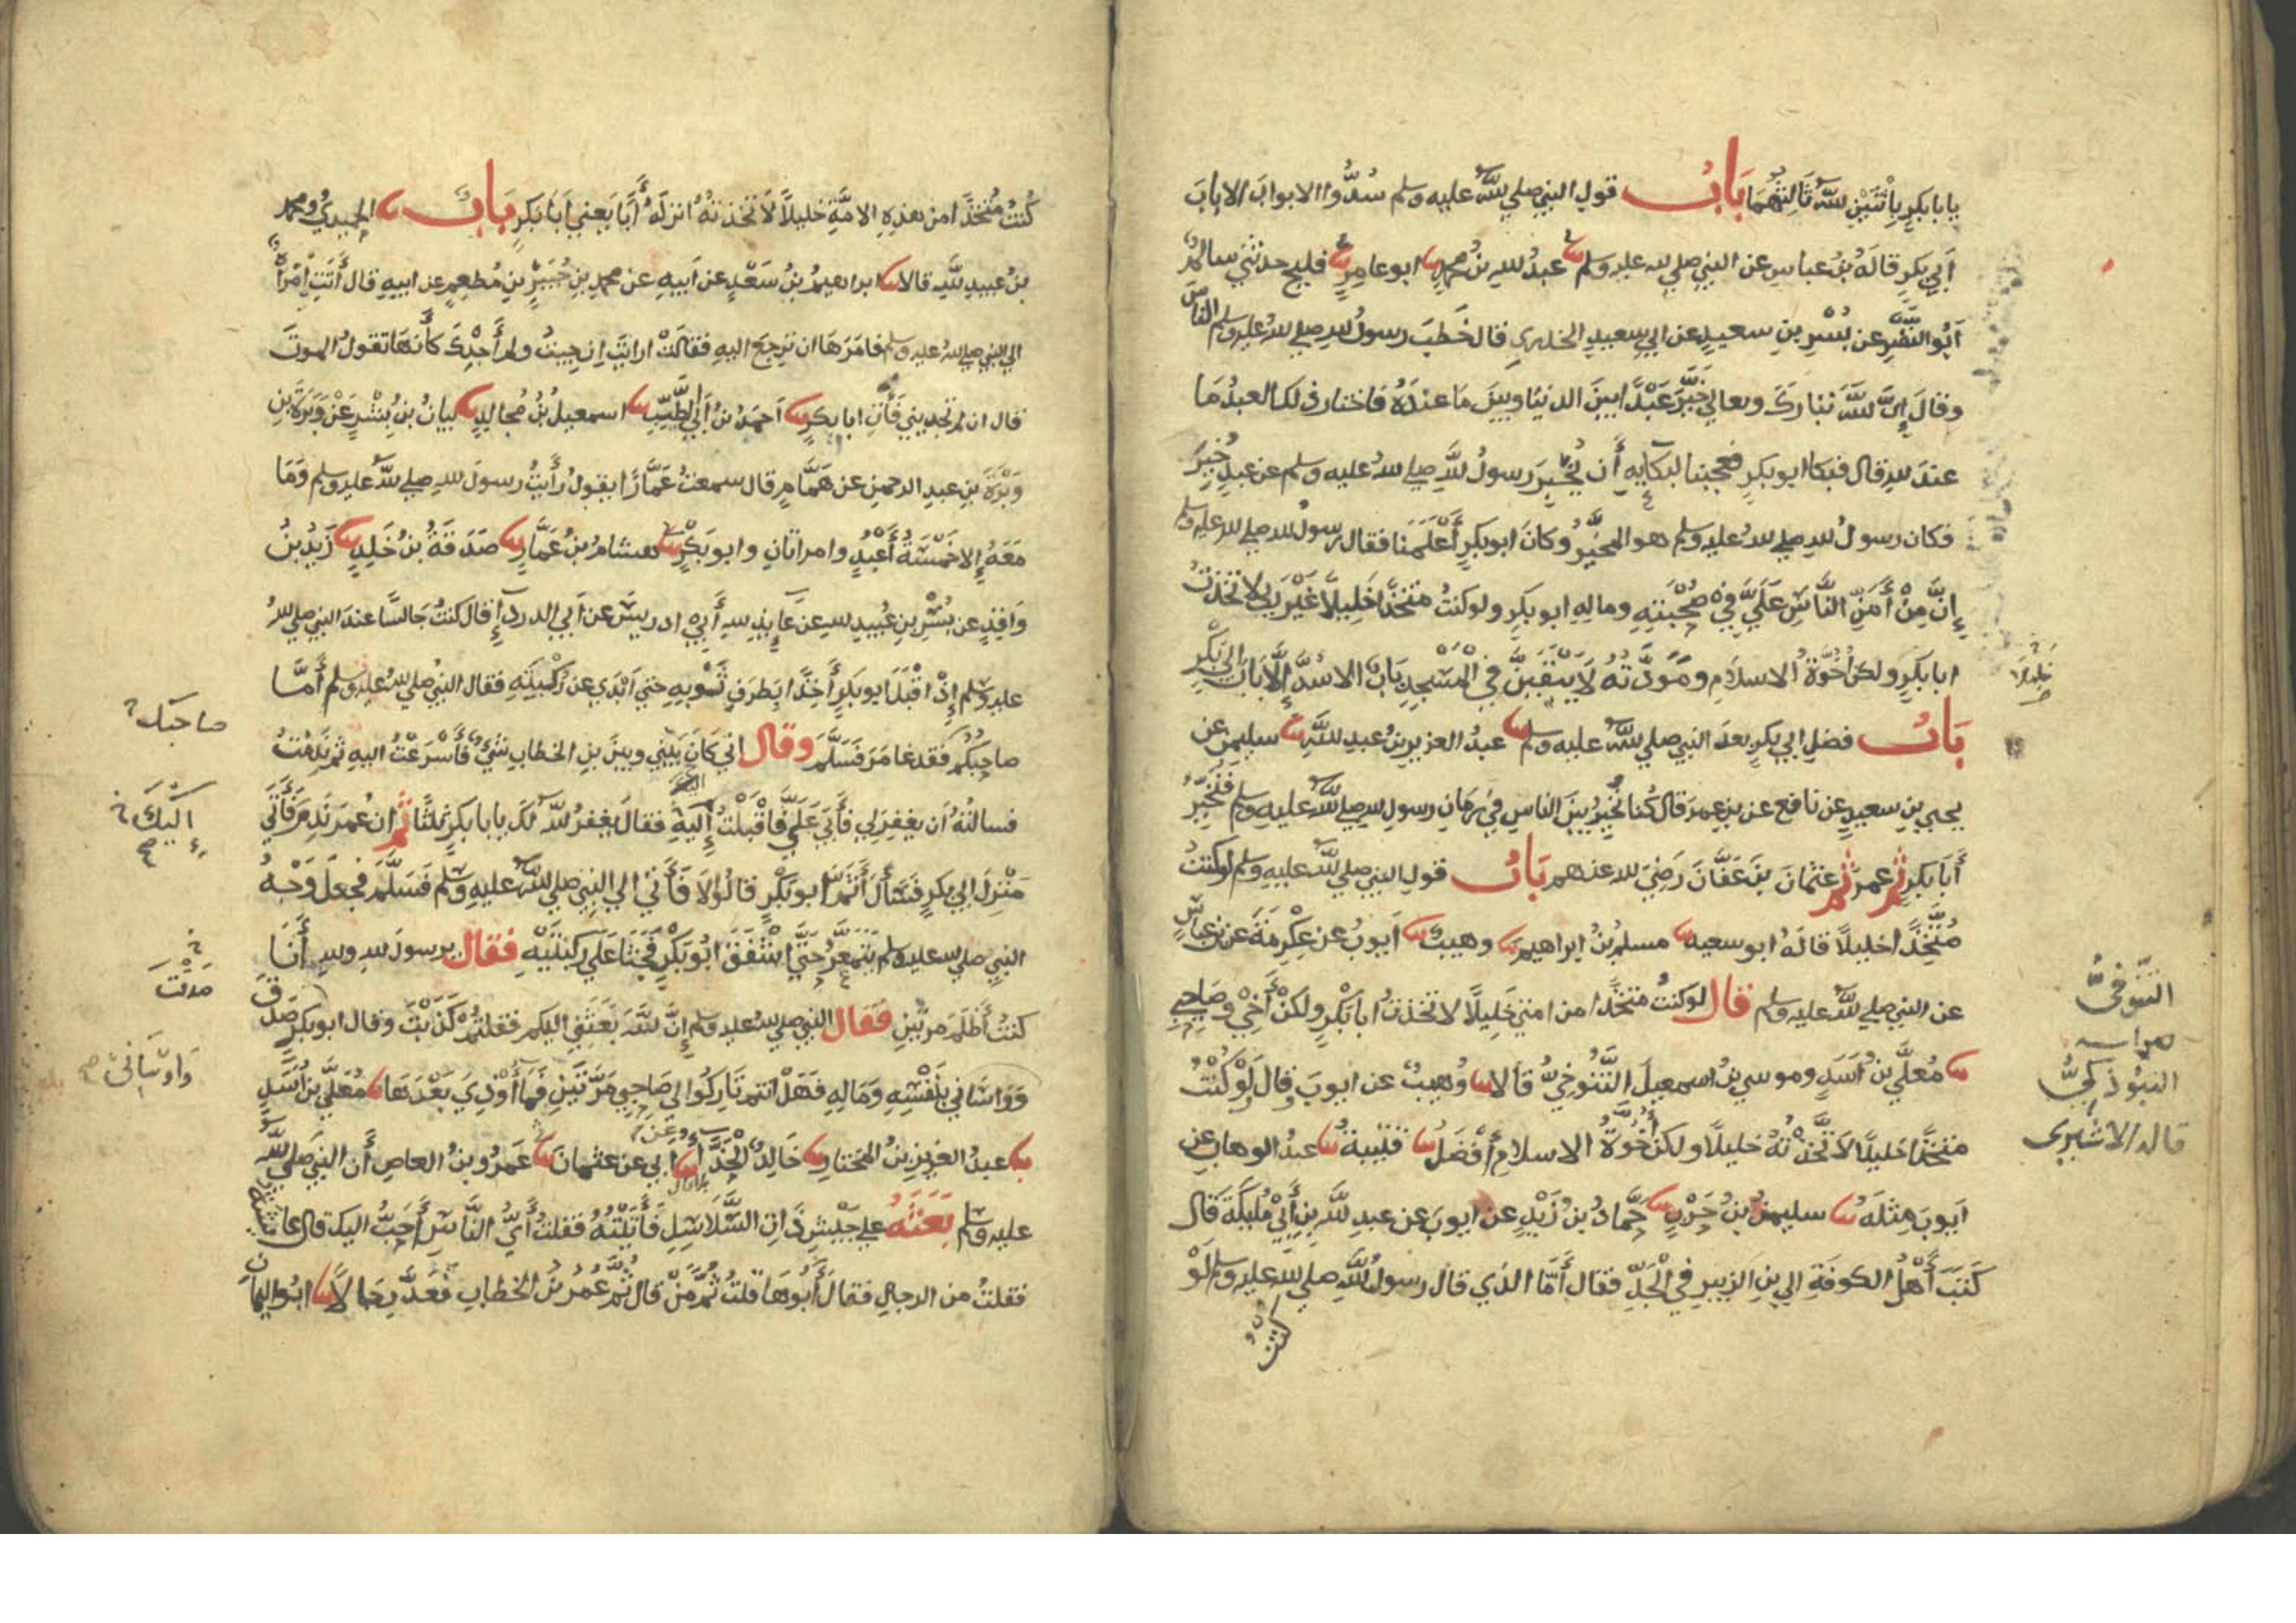 يا با بكر باثنين الله ثالثهما باب قول النبي صلي الله عليه وسلم سُدُّوا الابواب الا باب
أبي بكر قاله بن عباس عن النبي صلي الله عليه وسلم عبد الله بن محمد ابو عامر فليح حدثني سالم
أبو النضر عن بُسْر بن سعيد عن ابي سعيد الخدري قال خطب رسول الله صلي الله عليه وسلم الناس
وقال إن الله تبارك وتعالي خيَّر عبدًا بين الدنيا وبين ما عنده فاختار ذلك العبد ما
عند الله قال فبكا ابو بكر فعجبنا لبكايه أن يُخبِر رسول الله صلي الله عليه وسلم عن عبدٍ خُيِّر
فكان رسول الله صلي الله عليه وسلم هو المخيَّر وكان ابو بكر أعلمنا فقال رسول الله صلي الله عليه وسلم
إنَّ مِنْ أَمَنِّ الناس عَلَيَّ في صحبته وماله ابو بكر ولو كنت متخذا خليلا غير ربي لاتخذت
خليلا
ابا بكر ولكن أخوة الاسلام ومودته لا يبقين في المسجد باب الا سُدَّ إلَّا باب ابي بكر
باب فضل ابي بكر بعد النبي صلي الله عليه وسلم عبد العزيز بن عبد الله سليمن عن
يحيي بن سعيد عن نافع عن بن عمر قال كنا نُخيِّر بين الناس في زمان رسول الله صلي الله عليه وسلم فنُخيِّر
أبا بكر ثم عمر ثم عثمان بن عفان رضي الله عنهم باب قول النبي صلي الله عليه وسلم لو كنت
متخذا خليلا قاله ابو سعيد مسلم بن ابراهيم وهيب أيوب عن عكرمة عن بن عباس
عن النبي صلي الله عليه وسلم قال لو كنت متخذا من امتي خليلا لاتخذت ابا بكر ولكن أخي وصاحبي
معلَّي بن أسد وموسي بن اسمعيل التنوخي قالا وهيب عن ايوب وقال لو كنت
التبوذكيُّ
قاله الاشيري
متخذا خليلا لاتخذته خليلا ولكن أخوة الاسلام أفضل قتيبة عبد الوهاب عن
ايوب مثله سليمن بن حرب حماد بن زيد عن ايوب عن عبد الله بن أبي مليكة قال
كتب أهل الكوفة الي بن الزبير في الجد فقال أمَّا الذي قال رسول الله صلي الله عليه وسلم لو
كنتُ
كنتُ متخذا من هذه الامة خليلا لاتخذته انزله أبا يعني ابا بكر باب الحميدي ومحمد
بن عبيد الله قالا ابراهيم بن سعد عن ابيه عن محمد بن جبير بن مطعم عن ابيه قال أتت امرأة
الي النبي صلي الله عليه وسلم فامرها ان ترجع اليه فقالت ارايت إن جيت ولم أجدك كأنها تقول الموت
قال ان لم تجديني فأتي ابا بكر احمد بن أبي الطيب اسمعيل بن مجالد بيان بن بشر عن وبرة بن
وبرة بن عبد الرحمن عن همام قال سمعت عمارا يقول رأيت رسول الله صلي الله عليه وسلم وما
معه إلا خمسة أعبد وامراتان وابو بكر هشام بن عمار صدقة بن خلد زيد بن
واقد عن بسر بن عبيد الله عن عايذ الله أبي ادريس عن أبي الدردا قال كنت جالسا عند النبي صلي الله
عليه وسلم إذ اقبل ابو بكر أخذا بطرف ثوبه حتي ابدي عن ركبته فقال النبي صلي الله عليه وسلم أما
صاحبك
صاحبكم فقد غامر فسلَّم وقال اني كان بيني وبين بن الخطاب شيء فأسرعت اليه ثم ندمت
فسالته أن يغفر لي فأبي علي فاقبلت إليه فقال يغفر الله لك يا با بكر ثلثا ثم ان عمر ندم فأتي
إليك
منزل ابي بكر فسأل أثمَّ ابو بكر قالوا لا فأتي الي النبي صلي الله عليه وسلم فسلم فجعل وجه
النبي صلي الله عليه وسلم يتمعَّر حتي اشفق ابو بكر فجثا علي ركبتيه فقال يرسول الله والله أنا
صَدَقْتَ
كنت أظلم مرتين فقال النبي صلي الله عليه وسلم إن الله بعثني اليكم فقلتم كذبت وقال ابو بكر صدق
وواساني
وواساني بنفسه وماله فهل انتم تاركوا لي صاحبي مرتين فما أوذي بعدها معلي بن أسد
عبد العزيز بن المختار خالد الحذا أبي عن عثمان عمرو بن العاص أن النبي صلي الله
عليه وسلم بعثه علي جيش ذات السلاسل فأتيته فقلت أي الناس أحب اليك قال عايشة
فقلت من الرجال فقال أبوها قلت ثم من قال ثم عمر بن الخطاب فعد رجالا ابو اليمان